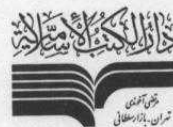 دار الکتب الاسلامیة
مرتضی آخوندی
تهران - بازار سلطانی